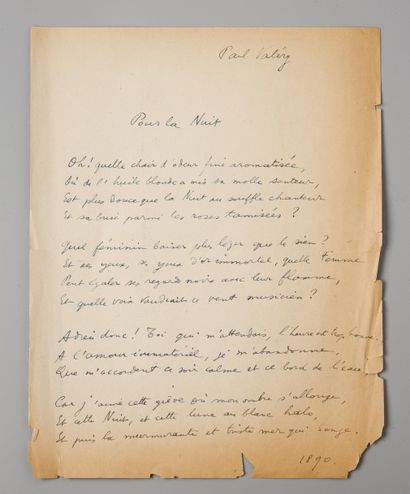 Paul Valéry
Pour la Nuit
Oh! quelle chair d'odeur fine aromatisée,
Où de l'huile blonde a mis sa molle senteur,
Est plus douce que la Nuit au souffle chanteur
Et sa brise parmi les roses tamisées?
Quel féminin baiser plus léger que le sien?
Et ses yeux, ses yeux d'or immortel, quelle Femme
Peut égaler ses regards noirs avec leur flamme,
Et quelle voix vaudrait ce vent musicien?
Adieu donc! Toi qui m'attendais, l'heure est trop bonne,
A l'amour immatériel, je m'abandonne,
Que m'accordent ce soir calme et ce bord de l'eau.
Car j'aime cette grève où mon ombre s'allonge,
Et cette Nuit, et cette lune au blanc halo,
Et puis la murmurante et triste mer qui songe.
1890.